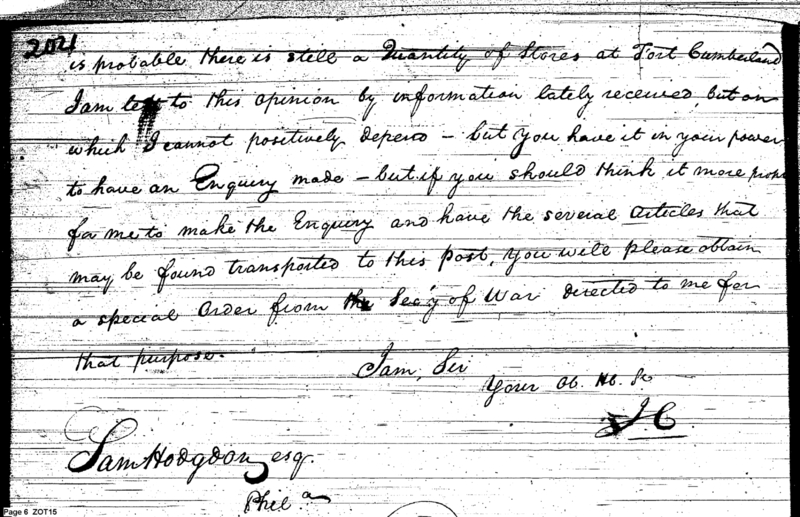 2021
is probable there is still a Quantity of Stores at Fort Cumberland
I am led to this opinion by information lately received, but on
which I cannot positively depend – but you have it in your power
to have an Enquiry made – but if you should think it more
for me to make the Enquiry and have the several Articles that
may be found transported to this post, you will please obtain
a special Order from the Sec'y of War directed to me for
that purpose.
I am, Sir
Your Ob. Hb. St
J C
Sam Hodgdon esq.
Phil a
Page 6 ZOT15